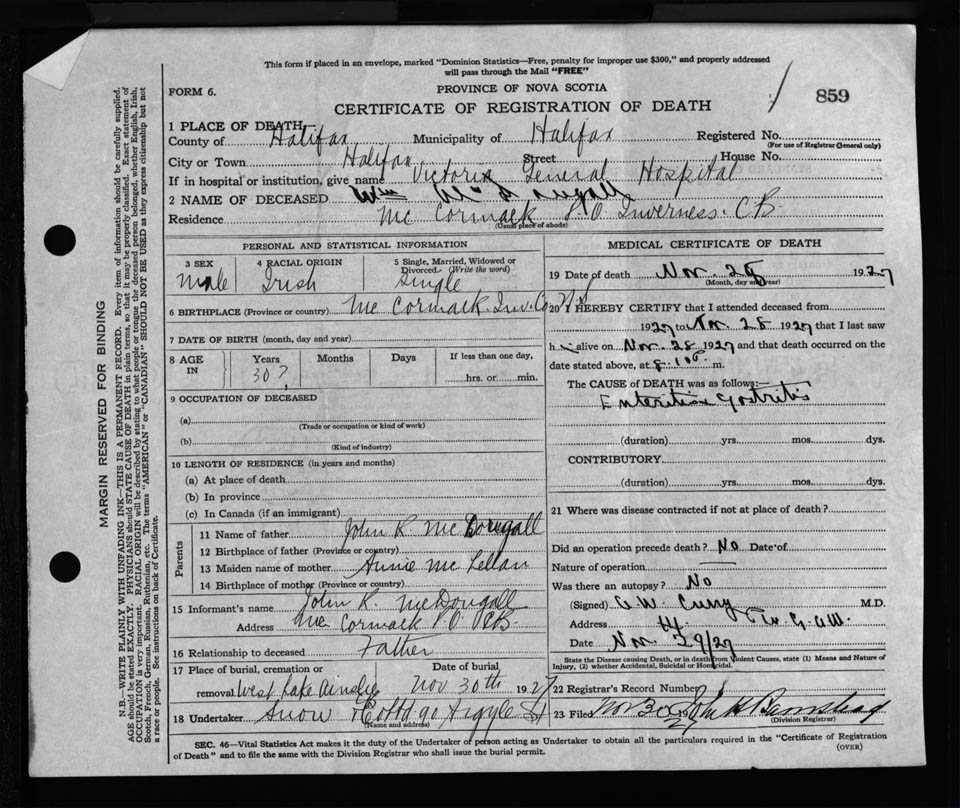 This form if placed in an envelope, marked "Dominion Statistics—Free, penalty for improper use $300," and properly addressed
will pass through the Mail "FREE"
FORM 6.
PROVINCE OF NOVA SCOTIA
859
CERTIFICATE OF REGISTRATION OF DEATH
1 PLACE OF DEATH—
County of Halifax Municipality of Halifax Registered No.
(For use of Registrar General only)
City or Town Halifax Street House No.
If in hospital or institution, give name Victoria General Hospital
2 NAME OF DECEASED Wm McDougall
Residence Mc Cormack P.O. Inverness. C B
(Usual place of abode)
PERSONAL AND STATISTICAL INFORMATION
3 SEX
Male
4 RACIAL ORIGIN
Irish
5 Single, Married, Widowed or
Divorced. (Write the word)
Single
6 BIRTHPLACE (Province or country) Mc Cormack. Inv. Co. N.S
7 DATE OF BIRTH (month, day and year)
8 AGE
IN
Years Months Days
30?
If less than one day,
hrs. or min.
9 OCCUPATION OF DECEASED
(a)
(Trade or occupation or kind of work)
(b)
(Kind of industry)
10 LENGTH OF RESIDENCE (in years and months)
(a) At place of death
(b) In province
(c) In Canada (if an immigrant)
Parents
11 Name of father John R. McDougall
12 Birthplace of father (Province or country)
13 Maiden name of mother Annie Mc Lellan
14 Birthplace of mother (Province or country)
15 Informant's name John R. McDougall
Address Mc Cormack P.O. CB.
16 Relationship to deceased Father
17 Place of burial, cremation or Date of burial
removal West Lake Ainslie Nov 30th 1927
18 Undertaker Snow & Co Ltd 90 Argyle St
(Name and address)
MEDICAL CERTIFICATE OF DEATH
19 Date of death Nov. 28 1927
(Month, day and year)
20 I HEREBY CERTIFY that I attended deceased from
1927 to Nov. 28 1927 that I last saw
h im alive on Nov. 28 1927 and that death occurred on the
date stated above, at 8.10 P. m.
The CAUSE of DEATH was as follows:—
Enteritis Gastritis
(duration) yrs. mos. dys.
CONTRIBUTORY
(duration) yrs. mos. dys.
21 Where was disease contracted if not at place of death?
Did an operation precede death? No Date of
Nature of operation
Was there an autopsy? No
(Signed) M.D.
Address
Date Nov. 29/27
State the Disease causing Death, or in death from Violent Causes, state (1) Means and Nature of
Injury, (2) whether Accidental, Suicidal or Homicidal.
22 Registrar's Record Number
23 Filed Nov 30 27
(Division Registrar)
SEC. 46—Vital Statistics Act makes it the duty of the Undertaker or person acting as Undertaker to obtain all the particulars required in the "Certificate of Registration
of Death" and to file the same with the Division Registrar who shall issue the burial permit.
(OVER)
MARGIN RESERVED FOR BINDING
N.B.—WRITE PLAINLY WITH UNFADING INK—THIS IS A PERMANENT RECORD. Every item of information should be carefully supplied.
AGE should be stated EXACTLY. PHYSICIANS should STATE CAUSE OF DEATH in plain terms, so that it may be properly classified. Exact statement of
OCCUPATION is very important. RACIAL ORIGIN will be described by stating to what people or tongue the deceased person belonged, whether English, Irish,
Scotch, French, German, Russian, Ruthenian, etc. The terms "AMERICAN" or "CANADIAN" SHOULD NOT BE USED as they express citizenship but not
a race or people. See instructions on back of Certificate.